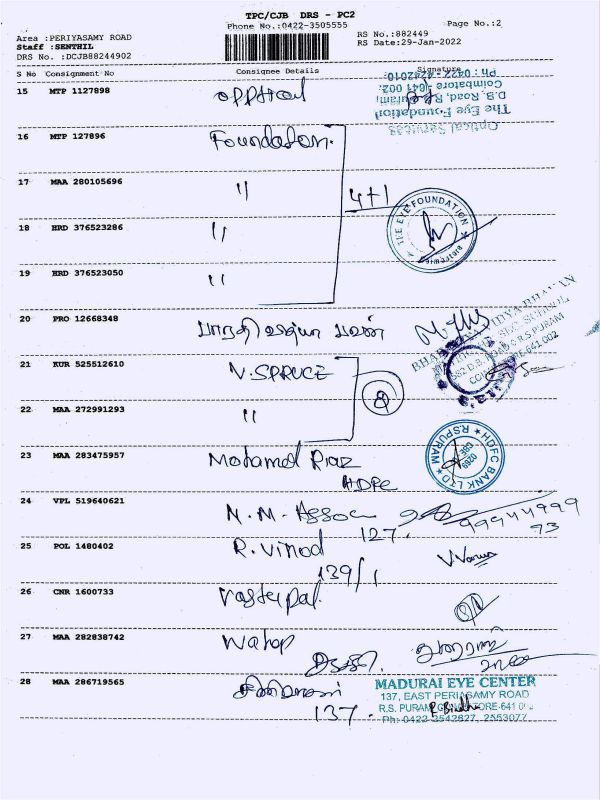 TPC/CJB DRS - PC2
Phone No.:0422-3505555
Page No.:2
Area :PERIYASAMY ROAD
Staff :SENTHIL
DRS No. :DCJB88244902
RS No.:882449
RS Date:29-Jan-2022
S No Consignment No Consignee Details Signature
15 MTP 1127898 opptical
Optical Services
The Eye Foundation
D.B. Road, R.S. Puram,
Coimbatore - 641 002.
Ph : 0422 - 4242010
16 MTP 127896 Foundation.
17 MAA 280105696 "
4+1
THE EYE FOUNDATION
18 HRD 376523286 "
19 HRD 376523050 "
20 PRO 12668348 பாரதி வித்யா பவன்
21 KUR 525512610 N.SPRUCE
22 MAA 272991293 "
23 MAA 283475957 Mohamed Riaz
HDFC
HDFC BANK LTD R.S.PURAM
24 VPL 519640621 N.M. Assoc
127.
25 POL 1480402 R. Vinod
139/1
26 CNR 1600733
27 MAA 282838742
28 MAA 286719565
137.
MADURAI EYE CENTER
137, EAST PERIASAMY ROAD
R.S. PURAM, COIMBATORE-641 0
Ph: 0422-2542827, 2553077